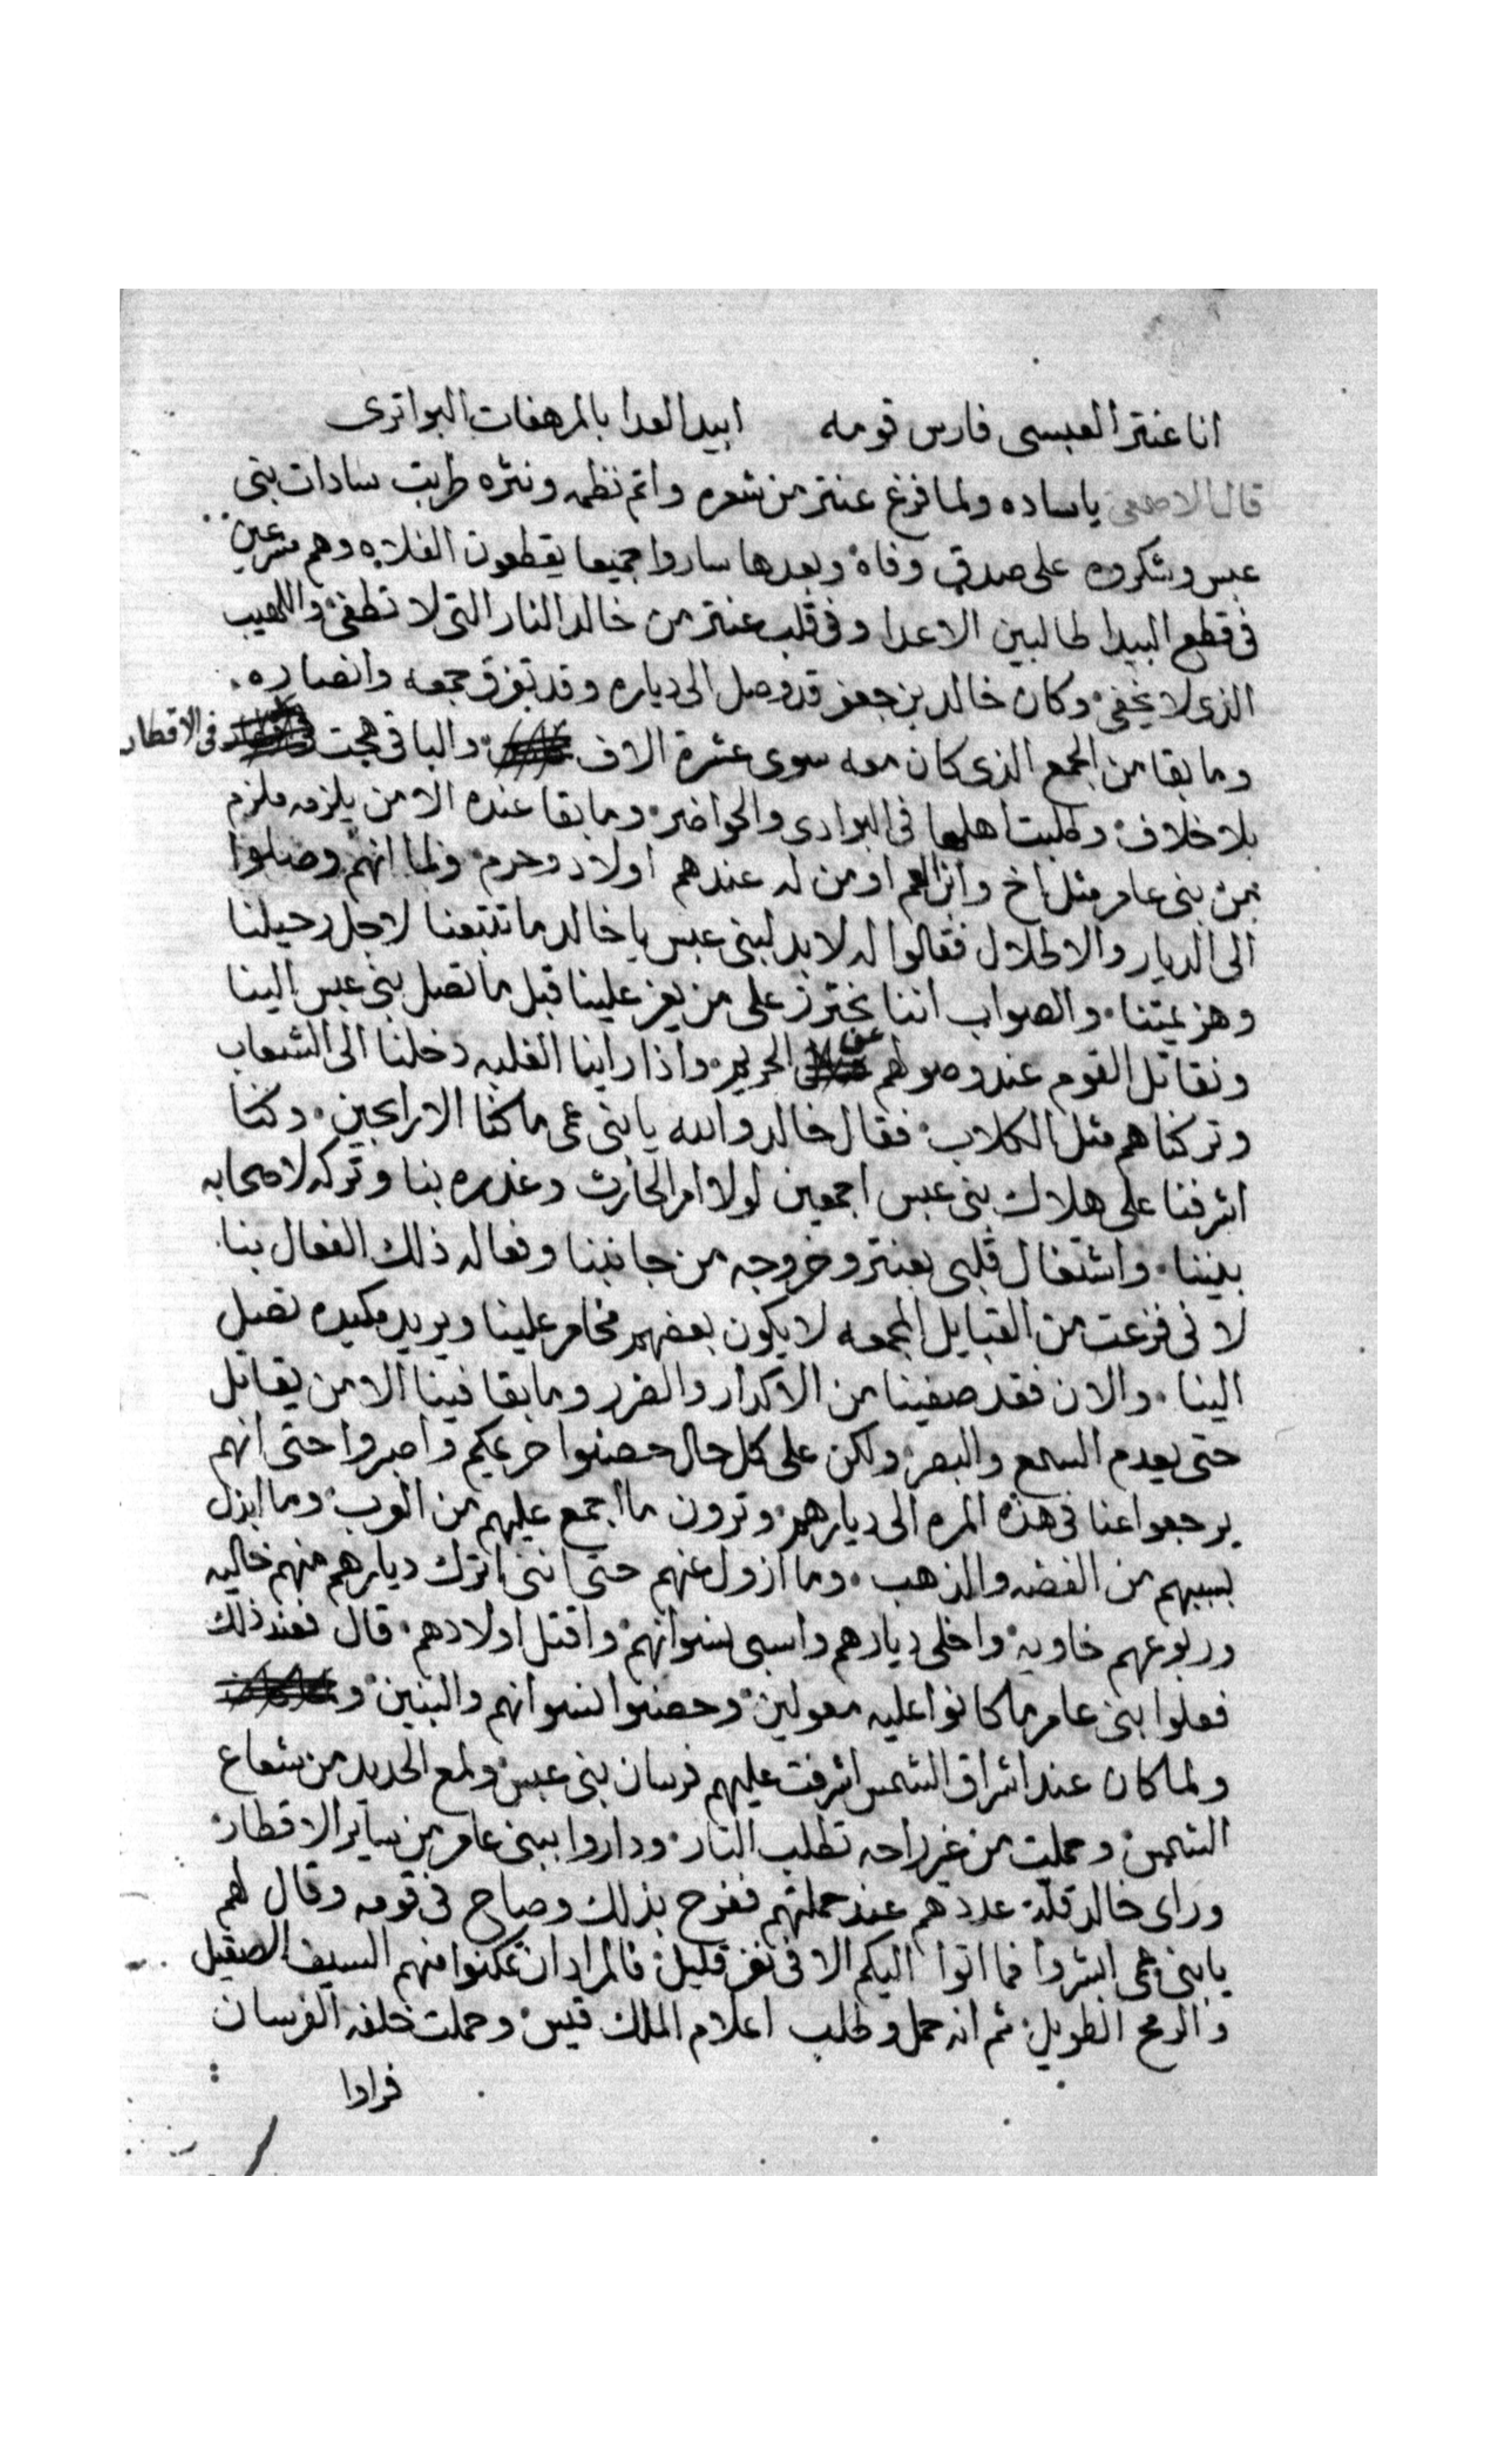 انا عنتر العبسى فارس قومه ابيد العدا بالمرهفات البواترى
قال الاصمعى ياساده ولما فرغ عنتر من شعره واتم نظمه ونثره طربت سادات بنى
عبس وشكروه على صدق وفاه وبعدها ساروا جميعا يقطعون الفلاه وهم مسرعين
فى قطع البيدا طالبين الاعدا وفى قلب عنتر من خالد النار التى لا تطفى واللهيب
الذى لا يخفى وكان خالد بن جعفر قد وصل الى دياره وقد تفرق جمعه وانصاره
وما بقا من الجمع الذى كان معه سوى عشرة الاف والباقى هجت فى الاقطار
بلا خلاف وطلبت اهلها فى البوادى والحواضر وما بقا عنده الا من يلزمه ملزم
من بنى عامر مثل اخ وابن العم او من له عندهم اولاد وحرم ولما انهم وصلوا
الى الديار والاطلال فقالوا له لا بد لبنى عبس يا خالد ما تتبعنا لاجل رحيلنا
وهزيمتنا والصواب اننا نحترز على من يعز علينا قبل ما تصل بنى عبس الينا
ونقاتل القوم عند وصولهم عن الحريم واذا راينا الغلبه دخلنا الى الشعاب
وتركناهم مثل الكلاب فقال خالد والله يا بنى عمى ما كنا الا رابحين وكنا
اشرفنا على هلاك بنى عبس اجمعين لولا امر الحارث وغدره بنا وتركه لاصحابه
بيننا واشتغال قلبى بعنتر وخروجه من جانبنا وفعاله ذلك الفعال بنا
لانى فزعت من القبايل المجمعه لا يكون بعضهم مخامر علينا ويريد مكيده تصل
الينا والان فقد صفينا من الاكدار والضرر وما بقا فينا الا من يقاتل
حتى يعدم السمع والبصر ولكن على كل حال حصنوا حريمكم واصبروا حتى انهم
يرجعوا عنا فى هذه المره الى ديارهم وترون ما اجمع عليهم من العرب وما ابذل
بسببهم من الفضه والذهب وما ازول عنهم حتى اننى اترك ديارهم منهم خاليه
وربوعهم خاويه واخلى ديارهم واسبى نسوانهم واقتل اولادهم قال فعند ذلك
فعلوا بنى عامر ما كانوا عليه معولين وحصنوا النسوانهم والبنين و
ولما كان عند اشراق الشمس اشرفت عليهم فرسان بنى عبس ولمع الحديد من شعاع
الشمس وحملت من غير راحه تطلب الثار وداروا ببنى عامر من ساير الاقطار
وراى خالد قلة عددهم عند حملتهم ففرح بذلك وصاح فى قومه وقال لهم
يا بنى عمى ابشروا فما اتوا اليكم الا فى نفر قليل فالمراد ان تمكنوا منهم السيف الصقيل
والرمح الطويل ثم انه حمل وطلب اعلام الملك قيس وحملت خلفه الفرسان
فرادا